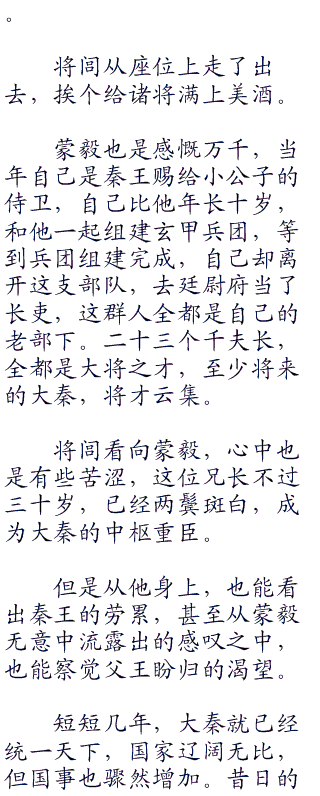 。
将闾从座位上走了出
去，挨个给诸将满上美酒。
蒙毅也是感慨万千，当
年自己是秦王赐给小公子的
侍卫，自己比他年长十岁，
和他一起组建玄甲兵团，等
到兵团组建完成，自己却离
开这支部队，去廷尉府当了
长吏，这群人全都是自己的
老部下。二十三个千夫长，
全都是大将之才，至少将来
的大秦，将才云集。
将闾看向蒙毅，心中也
是有些苦涩，这位兄长不过
三十岁，已经两鬓斑白，成
为大秦的中枢重臣。
但是从他身上，也能看
出秦王的劳累，甚至从蒙毅
无意中流露出的感叹之中，
也能察觉父王盼归的渴望。
短短几年，大秦就已经
统一天下，国家辽阔无比，
但国事也骤然增加。昔日的